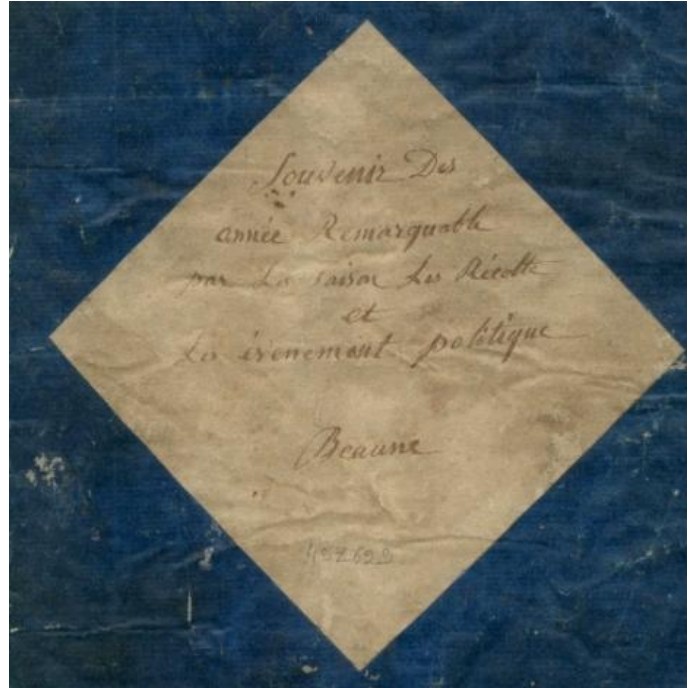 Souvenir Des
année Remarquable
par La saison Les Récolte
et
Les évenement politique
Beaune